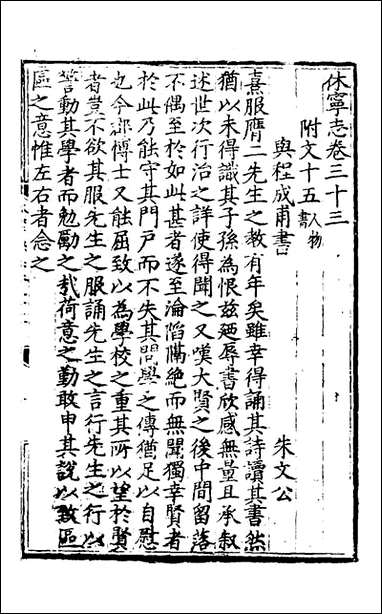 休寧志卷三十三
附文十五人物書
與程成甫書
朱文公
熹服膺二先生之教有年矣雖幸得誦其詩讀其書然
猶以未得識其子孫為恨茲廼辱書欣感無量且承叙
述世次行治之詳使得聞之又嘆大賢之後中間留落
不偶至於如此甚者遂至淪陷隔絶而無聞獨幸賢者
於此乃能守其門戸而不失其問學之傳猶足以自慰
也今郡博士又能屈致以為學校之重其所以望於賢
者豈不欲其服先生之服誦先生之言行先生之行以
警動其學者而勉勵之哉荷意之勤敢申其說以致區
區之意惟左右者念之